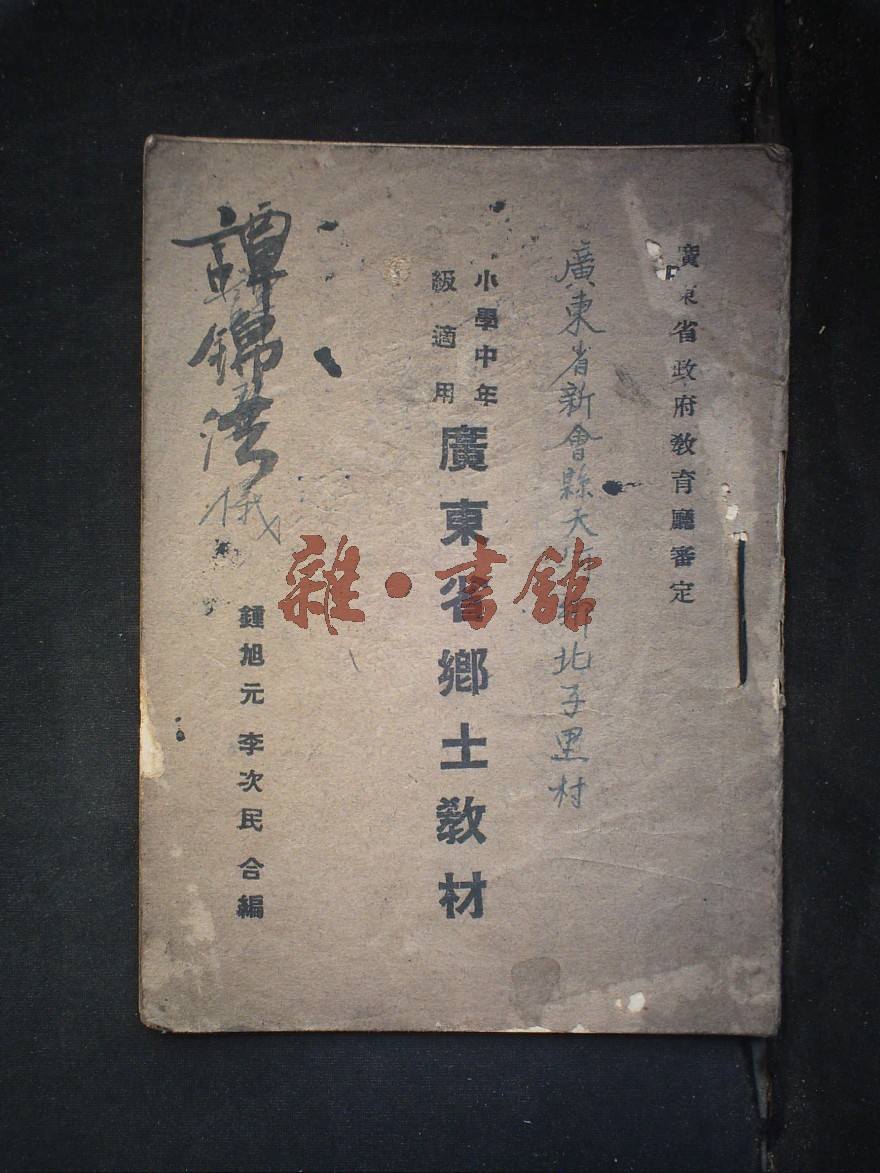 廣東省政府教育廳審定
廣東省新會縣天 北子里村
小學中年
級適用
廣東省鄉土教材
譚錦
鍾旭元 李次民 合編
雜·書館